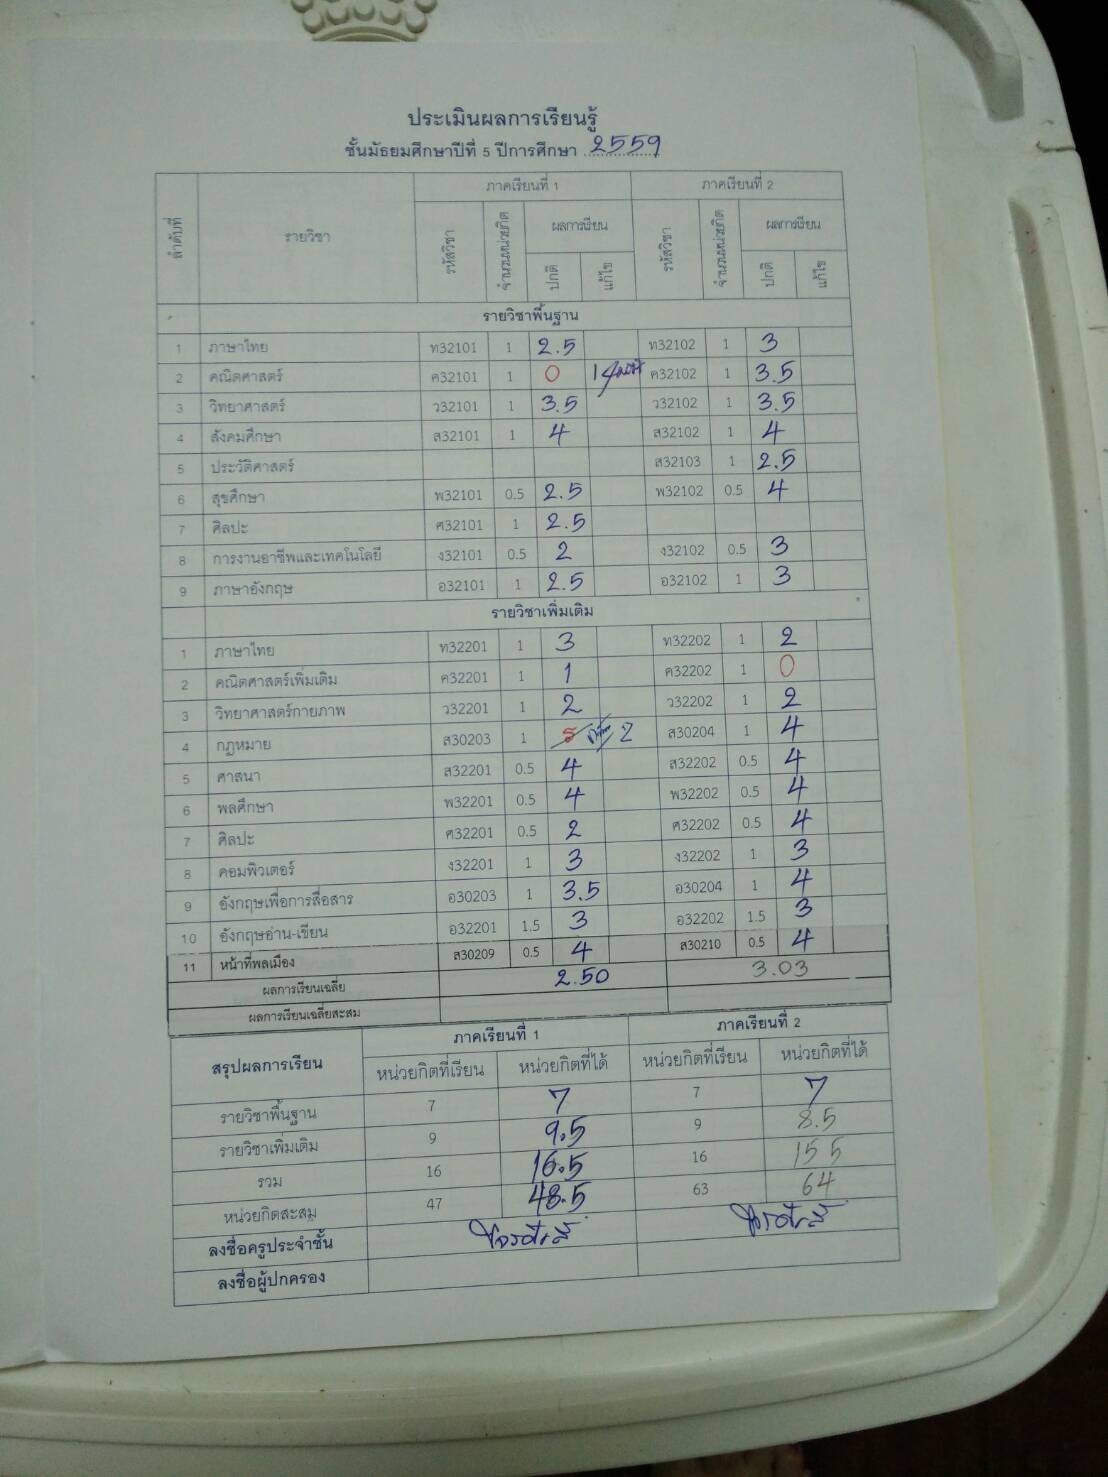 ประเมินผลการเรียนรู้
ชั้นมัธยมศึกษาปีที่ 5 ปีการศึกษา 2559
ลำดับที่ รายวิชา ภาคเรียนที่ 1 ภาคเรียนที่ 2
รหัสวิชา จำนวนหน่วยกิต ผลการเรียน รหัสวิชา จำนวนหน่วยกิต ผลการเรียน
ปกติ แก้ไข ปกติ แก้ไข
รายวิชาพื้นฐาน
1 ภาษาไทย ท32101 1 2.5 ท32102 1 3
2 คณิตศาสตร์ ค32101 1 0 1 ค32102 1 3.5
3 วิทยาศาสตร์ ว32101 1 3.5 ว32102 1 3.5
4 สังคมศึกษา ส32101 1 4 ส32102 1 4
5 ประวัติศาสตร์ ส32103 1 2.5
6 สุขศึกษา พ32101 0.5 2.5 พ32102 0.5 4
7 ศิลปะ ศ32101 1 2.5
8 การงานอาชีพและเทคโนโลยี ง32101 0.5 2 ง32102 0.5 3
9 ภาษาอังกฤษ อ32101 1 2.5 อ32102 1 3
รายวิชาเพิ่มเติม
1 ภาษาไทย ท32201 1 3 ท32202 1 2
2 คณิตศาสตร์เพิ่มเติม ค32201 1 1 ค32202 1 0
3 วิทยาศาสตร์กายภาพ ว32201 1 2 ว32202 1 2
4 กฎหมาย ส30203 1 ร 2 ส30204 1 4
5 ศาสนา ส32201 0.5 4 ส32202 0.5 4
6 พลศึกษา พ32201 0.5 4 พ32202 0.5 4
7 ศิลปะ ศ32201 0.5 2 ศ32202 0.5 4
8 คอมพิวเตอร์ ง32201 1 3 ง32202 1 3
9 อังกฤษเพื่อการสื่อสาร อ30203 1 3.5 อ30204 1 4
10 อังกฤษอ่าน-เขียน อ32201 1.5 3 อ32202 1.5 3
11 หน้าที่พลเมือง ส30209 0.5 4 ส30210 0.5 4
ผลการเรียนเฉลี่ย 2.50 3.03
ผลการเรียนเฉลี่ยสะสม
สรุปผลการเรียน ภาคเรียนที่ 1 ภาคเรียนที่ 2
หน่วยกิตที่เรียน หน่วยกิตที่ได้ หน่วยกิตที่เรียน หน่วยกิตที่ได้
รายวิชาพื้นฐาน 7 7 7 7
รายวิชาเพิ่มเติม 9 9.5 9 8.5
รวม 16 16.5 16 15 5
หน่วยกิตสะสม 47 48.5 63 64
ลงชื่อครูประจำชั้น
ลงชื่อผู้ปกครอง